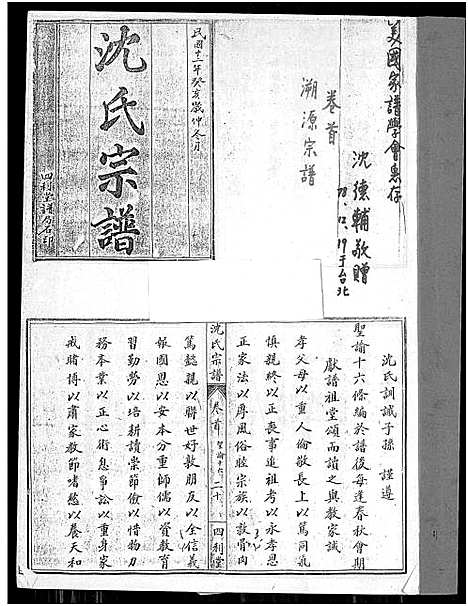 美國家譜學會惠存
沈德輔敬贈
78.12.19于台北
卷首
溯源宗譜
民國十二年癸亥歲仲冬月
沈氏宗譜
四利堂譜房石印
沈氏訓誡子孫 謹遵
聖諭十六條編於譜後每逢春秋會期
獻譜祖堂頌而讀之與教家誡
孝父母以重人倫敬長上以篤同氣
慎親終以正喪事追祖考以永孝思
正家法以厚風俗睦宗族以敦骨肉
沈氏宗譜 卷首 聖諭十六 二十 四利堂
篤懿親以聯世好敦朋友以全信義
報國恩以安本分重師儒以資教育
習勤勞以培耕讀崇節儉以惜物力
務本業以正心術息爭訟以重身家
戒賭博以肅家教節嗜慾以養天和